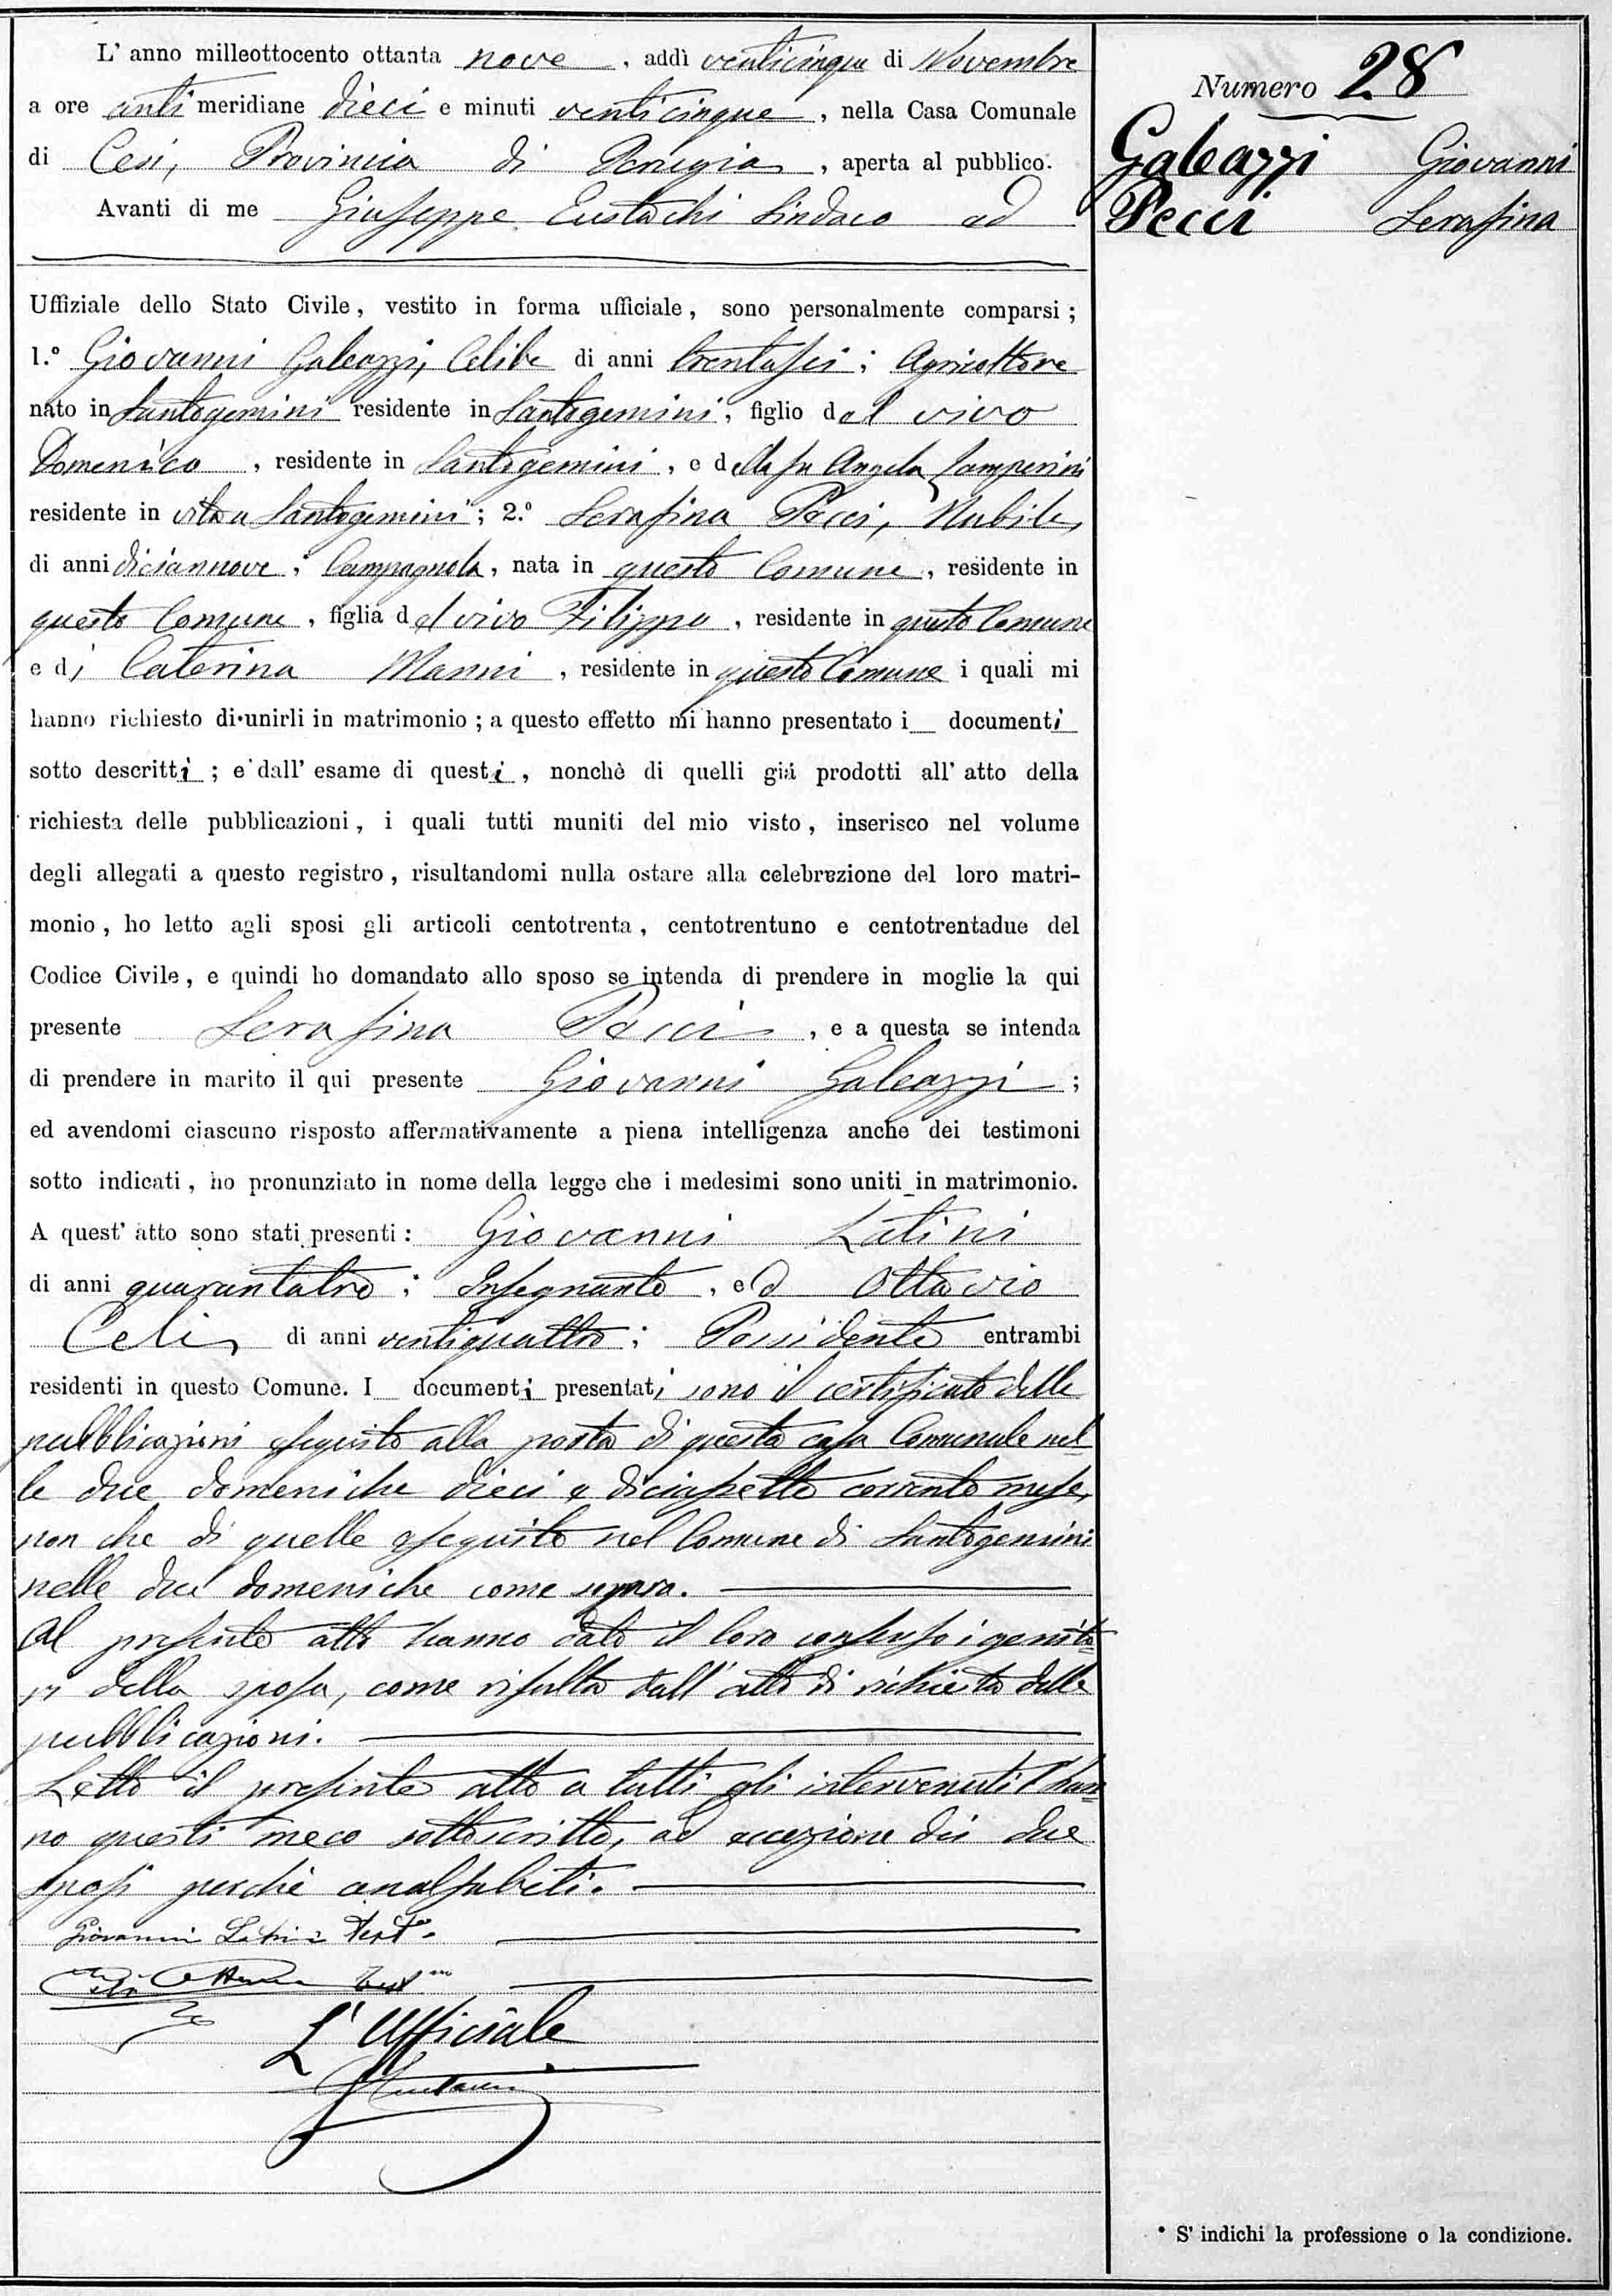 L' anno milleottocento ottanta nove, addì venticinque di Novembre
a ore anti meridiane dieci e minuti venticinque, nella Casa Comunale
di Cesi, Provincia di Perugia, aperta al pubblico.
Avanti di me Giuseppe Eustachi Sindaco ed
Uffiziale dello Stato Civile, vestito in forma ufficiale, sono personalmente comparsi;
1.° Giovanni Galeazzi, Celibe di anni trentasei; Agricoltore
nato in Santogemini residente in Santogemini, figlio del vivo
Domenico, residente in Santogemini, e della fu Angela Lamperini
residente in vita a Santogemini; 2.° Serafina Pecci, Nubile,
di anni diciannove; Campagnola, nata in questo Comune, residente in
questo Comune, figlia del vivo Filippo, residente in questo Comune
e di Caterina Manni, residente in questo Comune i quali mi
hanno richiesto di unirli in matrimonio; a questo effetto mi hanno presentato i documenti
sotto descritti; e dall' esame di questi, nonchè di quelli già prodotti all' atto della
richiesta delle pubblicazioni, i quali tutti muniti del mio visto, inserisco nel volume
degli allegati a questo registro, risultandomi nulla ostare alla celebrazione del loro matri-
monio, ho letto agli sposi gli articoli centotrenta, centotrentuno e centotrentadue del
Codice Civile, e quindi ho domandato allo sposo se intenda di prendere in moglie la qui
presente Serafina Pecci, e a questa se intenda
di prendere in marito il qui presente Giovanni Galeazzi;
ed avendomi ciascuno risposto affermativamente a piena intelligenza anche dei testimoni
sotto indicati, ho pronunziato in nome della legge che i medesimi sono uniti in matrimonio.
A quest' atto sono stati presenti: Giovanni Latini
di anni quarantatre; Insegnante, ed Ottavio
Celi, di anni ventiquattro; Possidente entrambi
residenti in questo Comune. I documenti presentati sono il certificato delle
pubblicazioni eseguite alla porta di questa casa Comunale nel-
le due domeniche dieci e diciasette corrente mese,
non che di quelle eseguite nel Comune di Santogemini
nelle due domeniche come sopra.
Al presente atto hanno dato il loro consenso i genito-
ri della sposa, come risulta dall' atto di richiesta delle
pubblicazioni.
Letto il presente atto a tutti gli intervenuti l'han-
no questi meco sottoscritto, ad eccezione dei due
sposi perchè analfabeti.
Giovanni Latini Teste.
Celi Ottavio Test
L' Ufficiale
G Eustachi
Numero 28
Galeazzi Giovanni
Pecci Serafina
* S' indichi la professione o la condizione.